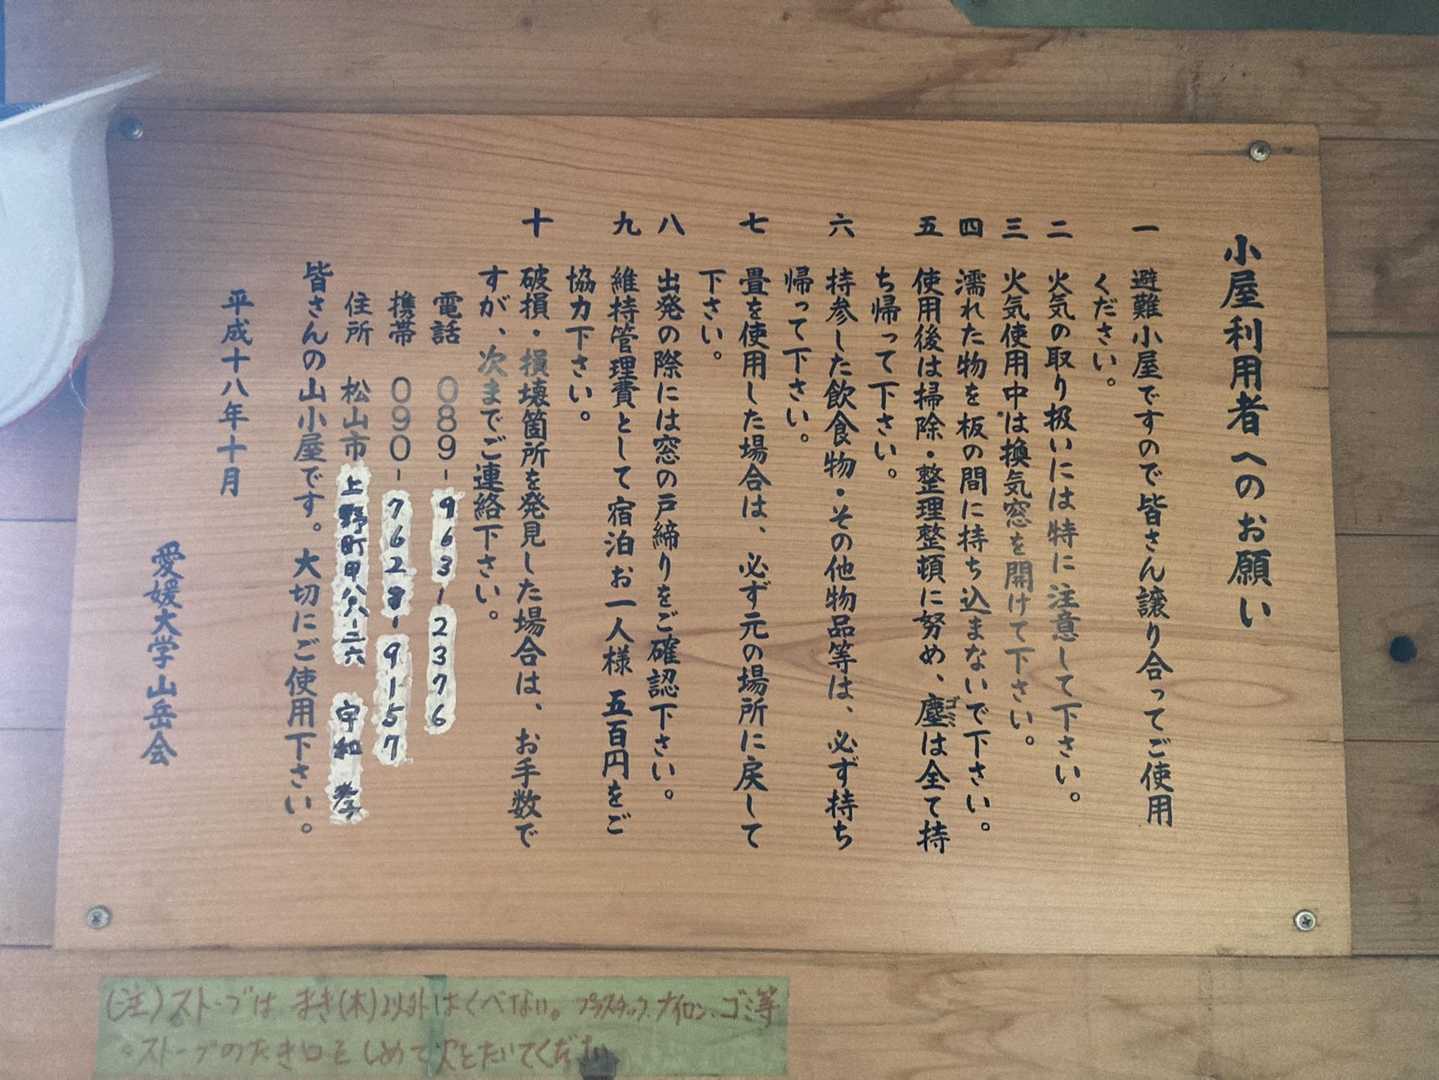 小屋利用者へのお願い
一 避難小屋ですので皆さん譲り合ってご使用
ください。
二 火気の取り扱いには特に注意して下さい。
三 火気使用中は換気窓を開けて下さい。
四 濡れた物を板の間に持ち込まないで下さい。
五 使用後は掃除・整理整頓に努め、塵は全て持
ゴミ
ち帰って下さい。
六 持参した飲食物・その他物品等は、必ず持ち
帰って下さい。
七 畳を使用した場合は、必ず元の場所に戻して
下さい。
八 出発の際には窓の戸締りをご確認下さい。
九 維持管理費として宿泊お一人様 五百円をご
協力下さい。
十 破損・損壊箇所を発見した場合は、お手数で
すが、次までご連絡下さい。
電話 089-963-2376
携帯 090-7628-9157
住所 松山市上野町甲八八-二六 宇和 孝
皆さんの山小屋です。大切にご使用下さい。
平成十八年十月
愛媛大学山岳会
(注)ストーブは まき(木)以外はくべない。プラスチック、ナイロン、ゴミ等
・ストーブのたき口を しめて 火をたいてください